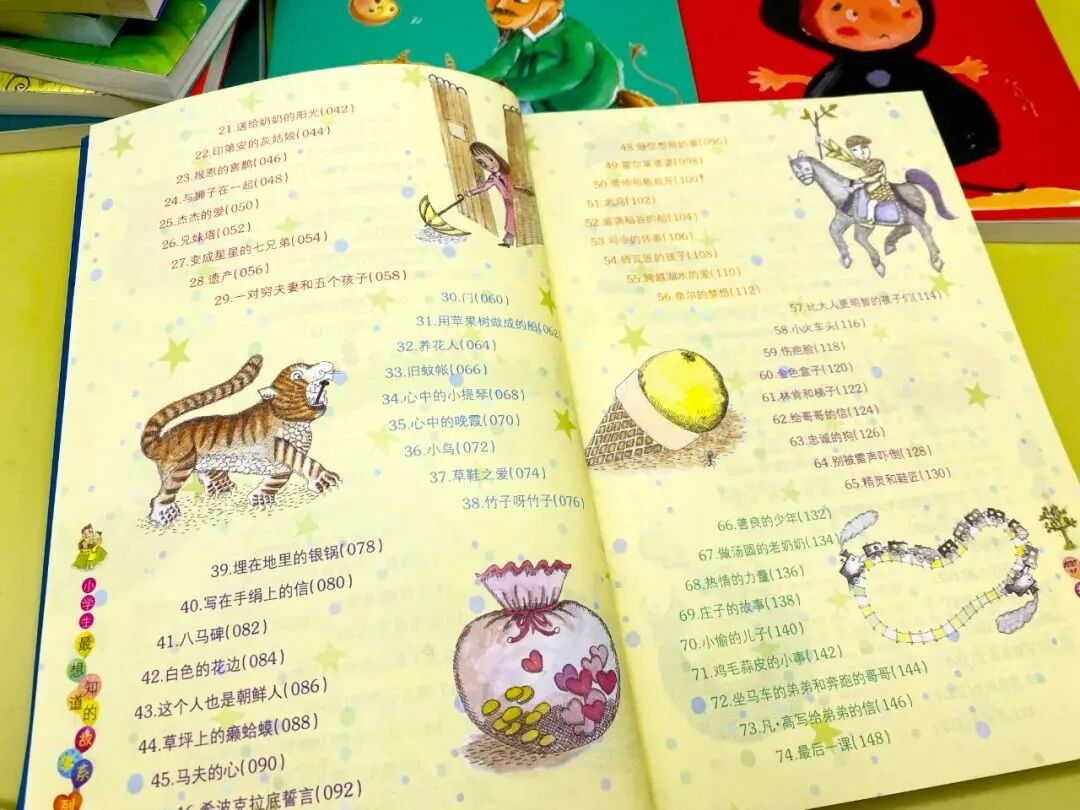 21.送给奶奶的阳光(042)
22.印第安的灰姑娘(044)
23.报恩的喜鹊(046)
24.与狮子在一起(048)
25.杰杰的爱(050)
26.兄妹塔(052)
27.变成星星的七兄弟(054)
28.遗产(056)
29.一对穷夫妻和五个孩子(058)
30.门(060)
31.用苹果树做成的船(062)
32.养花人(064)
33.旧蚊帐(066)
34.心中的小提琴(068)
35.心中的晚霞(070)
36.小鸟(072)
37.草鞋之爱(074)
38.竹子呀竹子(076)
39.埋在地里的银锅(078)
40.写在手绢上的信(080)
41.八马碑(082)
42.白色的花边(084)
43.这个人也是朝鲜人(086)
44.草坪上的癞蛤蟆(088)
45.马夫的心(090)
46.希波克拉底誓言(092)
小学生最想知道的故事系列
48.做你想做的事(096)
49.霍尔家婆婆(098)
50.管仲和鲍叔牙(100)
51.老马(102)
52.装满稻谷的船(104)
53.司令的怀表(106)
54.砖瓦匠的孩子(108)
55.跨越湖水的爱(110)
56.奈尔的梦想(112)
57.比大人更明智的孩子们(114)
58.小火车头(116)
59.伤疤脸(118)
60.金色盒子(120)
61.林肯和梯子(122)
62.给哥哥的信(124)
63.忠诚的狗(126)
64.别被雷声吓倒(128)
65.精灵和鞋匠(130)
66.善良的少年(132)
67.做汤圆的老奶奶(134)
68.热情的力量(136)
69.庄子的故事(138)
70.小偷的儿子(140)
71.鸡毛蒜皮的小事(142)
72.坐马车的弟弟和奔跑的哥哥(144)
73.凡·高写给弟弟的信(146)
74.最后一课(148)
100